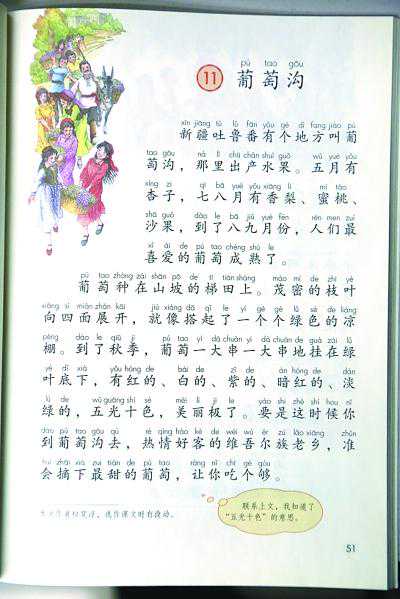 pú tao gōu
11 葡萄沟
xīn jiāng tǔ lǔ fān yǒu gè dì fang jiào pú
新疆吐鲁番有个地方叫葡
tao gōu nà lǐ chū chǎn shuǐ guǒ wǔ yuè yǒu
萄沟，那里出产水果。五月有
xìng zi qī bā yuè yǒu xiāng lí mì táo
杏子，七八月有香梨、蜜桃、
shā guǒ dào le bā jiǔ yuè fèn rén men zuì
沙果，到了八九月份，人们最
xǐ ài de pú tao chéng shú le
喜爱的葡萄成熟了。
pú tao zhòng zài shān pō de tī tián shàng mào mì de zhī yè
葡萄种在山坡的梯田上。茂密的枝叶
xiàng sì miàn zhǎn kāi jiù xiàng dā qǐ le yí gè gè lǜ sè de liáng
向四面展开，就像搭起了一个个绿色的凉
péng dào le qiū jì pú tao yí dà chuàn yí dà chuàn de guà zài lǜ
棚。到了秋季，葡萄一大串一大串地挂在绿
yè dǐ xià yǒu hóng de bái de zǐ de àn hóng de dàn
叶底下，有红的、白的、紫的、暗红的、淡
lǜ de wǔ guāng shí sè měi lì jí le yào shi zhè shí hou nǐ
绿的，五光十色，美丽极了。要是这时候你
dào pú tao gōu qù rè qíng hào kè de wéi wú ěr zú lǎo xiāng zhǔn
到葡萄沟去，热情好客的维吾尔族老乡，准
huì zhāi xià zuì tián de pú tao ràng nǐ chī gè gòu
会摘下最甜的葡萄，让你吃个够。
联系上文，我知道了
“五光十色”的意思。
51